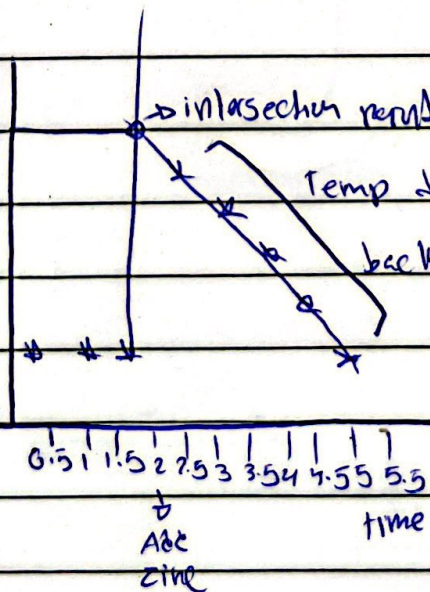 → intersection point
Temp d
back
0.5 1 1.5 2 2.5 3 3.5 4 4.5 5 5.5
time
Add
zinc